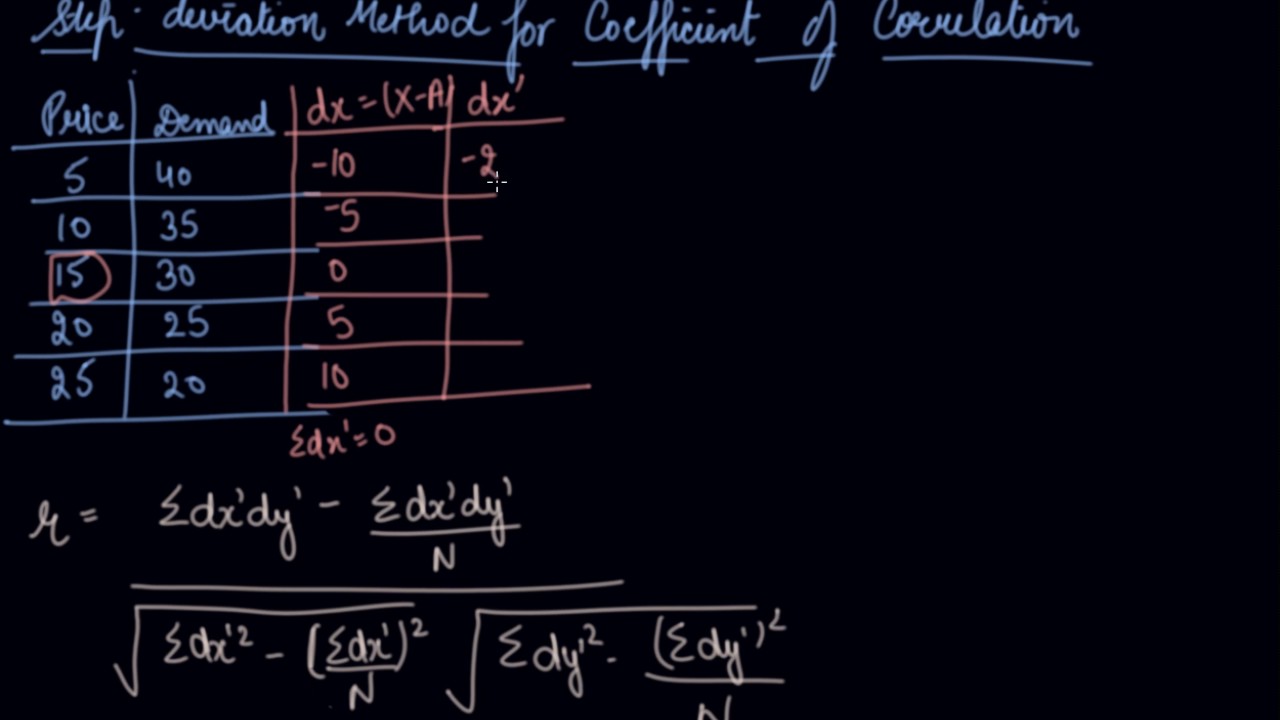 Step-deviation Method for Coefficient of Correlation
Price Demand dx=(X-A) dx'
5 40 -10 -2
10 35 -5
15 30 0
20 25 5
25 20 10
Σdx'=0
r = Σdx'dy' - Σdx'dy'
N
√Σdx'² - (Σdx')² √Σdy'² - (Σdy')²
N N